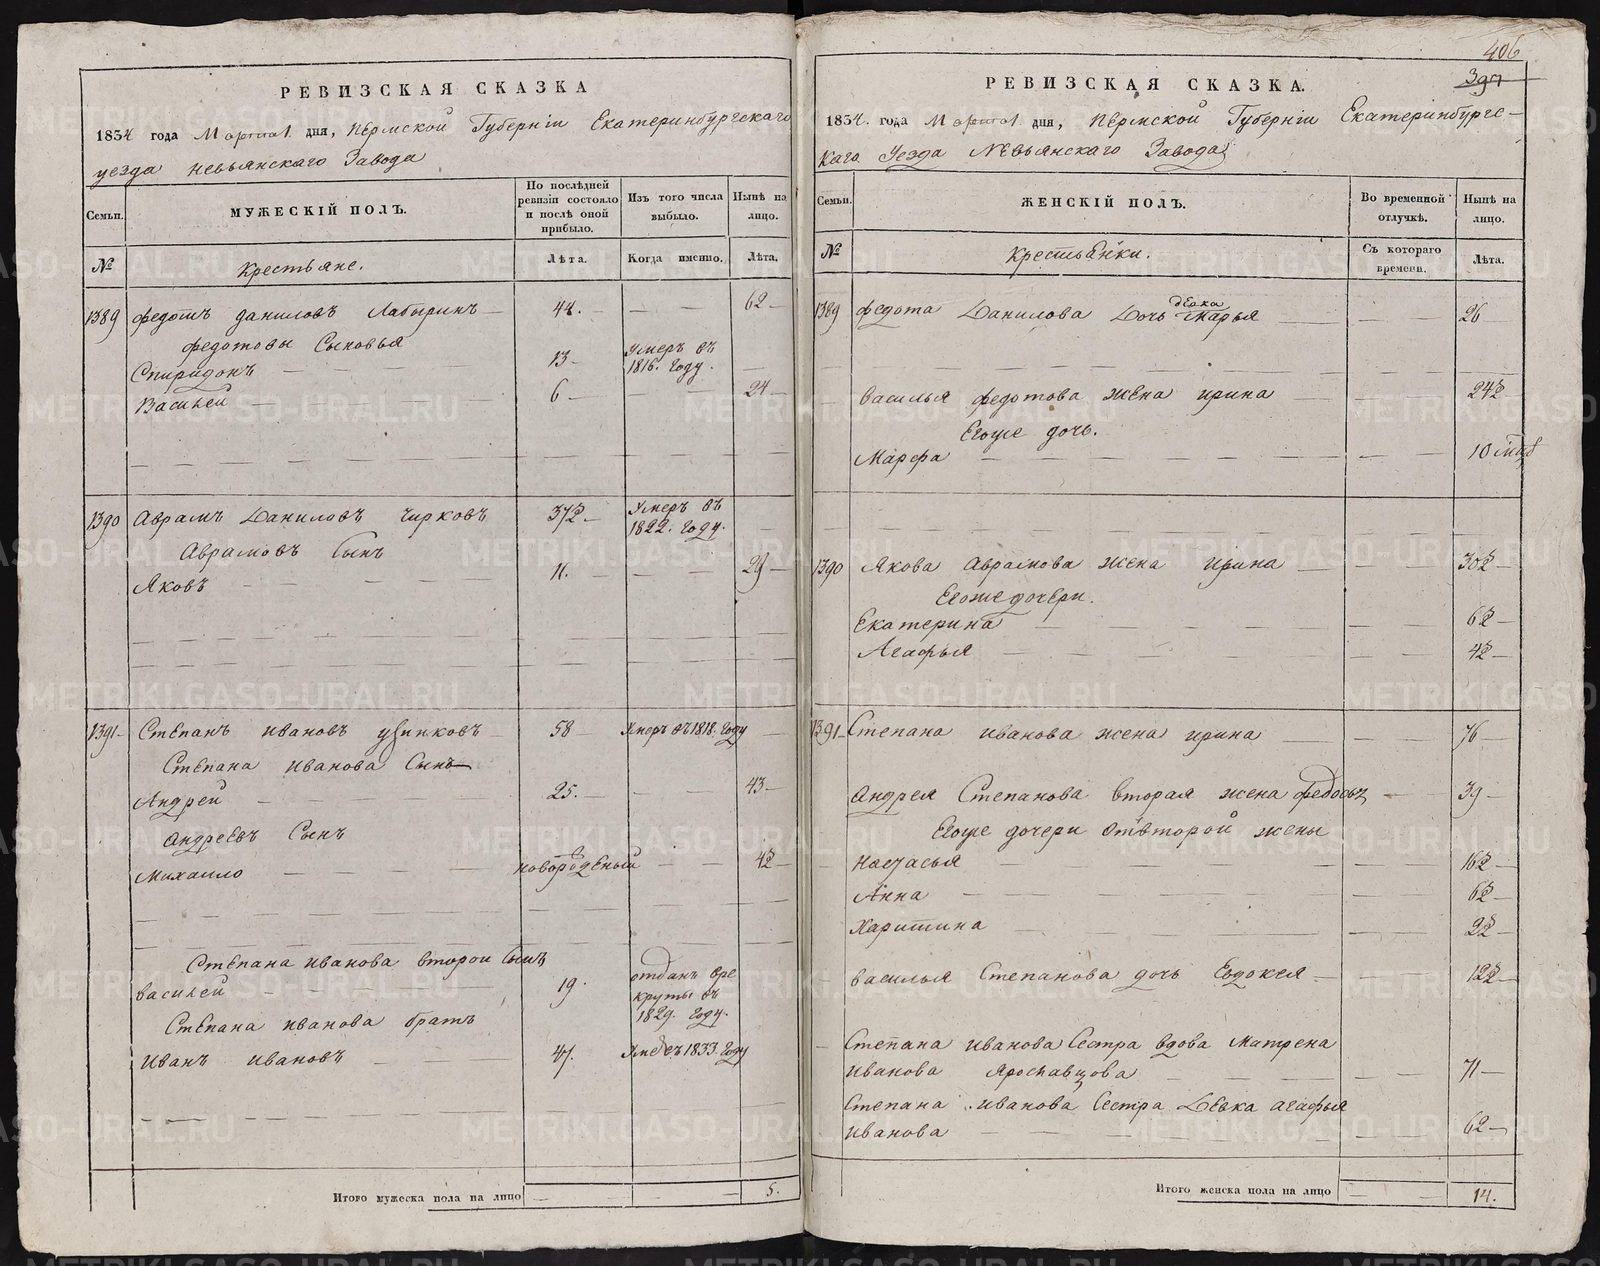 РЕВИЗСКАЯ СКАЗКА
1834 года Марта 1 дня, Пермской Губернiи Екатеринбургскаго
уезда невьянскаго Завода
Семьи.
МУЖЕСКIЙ ПОЛЪ.
По послѣдней ревизiи состояло и послѣ оной прибыло.
Изъ того числа выбыло.
Нынѣ на лицо.
№
Крестьяне.
Лѣта.
Когда именно.
Лѣта.
1389 федотъ даниловъ Лабыринъ 44. 62
федотовы Сыновья
Спиридонъ 13 Умеръ въ 1816. году.
Василей 6 24
1390 Аврамъ Даниловъ Чирковъ 37½ Умеръ въ 1822. году.
Аврамовъ Сынъ
Яковъ 11. 29
1391 Степанъ ивановъ 58 Умеръ въ 1818. году
Степана иванова Сынъ
Андрей 25. 43
андреевъ Сынъ
Михаило новорожденый 4½
Степана иванова второй Сынъ
василей 19. отданъ вре круты въ 1829. году.
Степана иванова братъ
иванъ ивановъ 47. 1833. году
Итого мужеска пола на лицо 5.
406
397
РЕВИЗСКАЯ СКАЗКА.
1834. года Марта 1 дня, Пермской Губернiи Екатеринбургс-
каго Уезда Невьянскаго Завода
Семьи.
ЖЕНСКIЙ ПОЛЪ.
Во временной отлучкѣ.
Нынѣ на лицо.
№
Крестьянки.
Съ котораго времени.
Лѣта.
девка
1389 федота Данилова Дочь Марья 26
василья федотова жена ирина 24½
Егоже дочь.
Марфа 10 мцъ
1390 Якова Аврамова жена ирина 30½
Егоже дочери.
Екатерина 6½
Агафья 4½
1391 Степана иванова жена ирина 76
андрея Степанова вторая жена федосья 39
Егоже дочери отвторой жены
настасья 16½
Анна 6½
Харитина 2½
василья Степанова дочь Евдокея 12½
Степана иванова Сестра вдова Матрена
иванова Ярославцова 71
Степана иванова Сестра Девка агафья
иванова 62
Итого женска пола на лицо 14.
METRIKI.GASO-URAL.RU